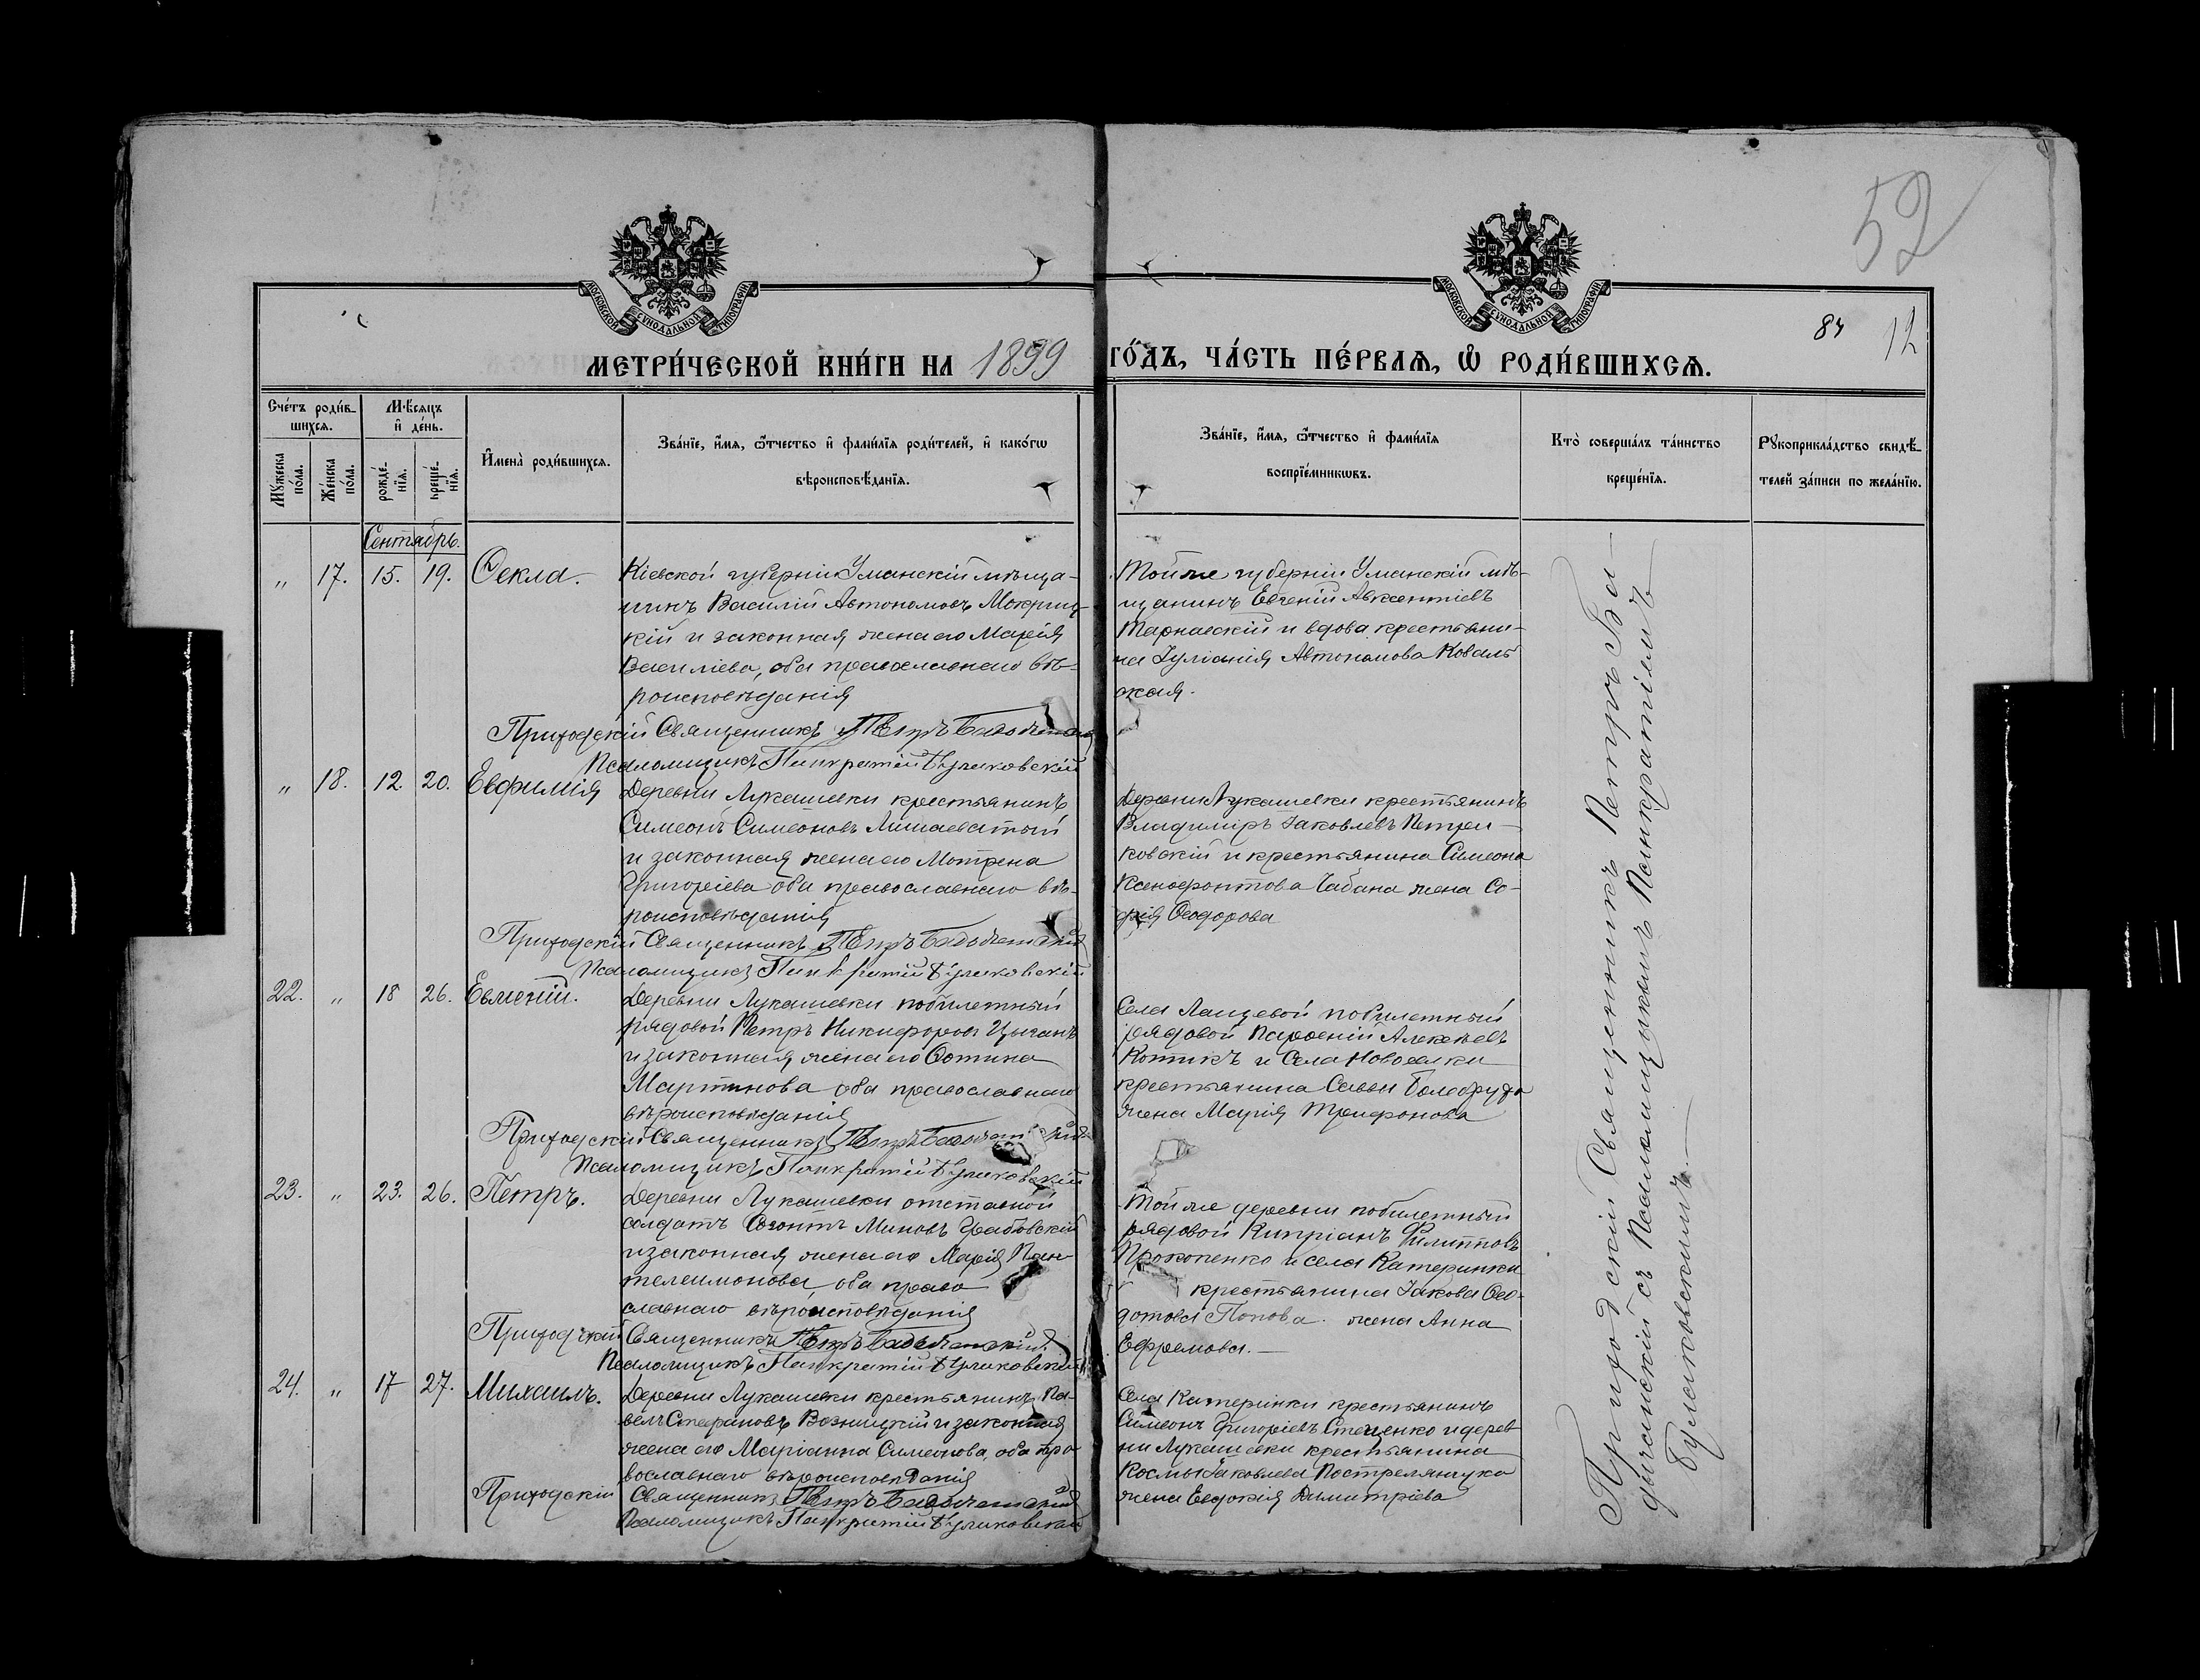 52
МОСКОВСКОЙ СѴНОДАЛЬНОЙ ТИПОГРАФІИ
МОСКОВСКОЙ СѴНОДАЛЬНОЙ ТИПОГРАФІИ
84 12
МЕТРИ́ЧЕСКОЙ КНИ́ГИ НА 1899 ГО́ДЪ, ЧА́СТЬ ПЕ́РВАѦ, Ѿ РОДИ́ВШИХСѦ.
Сче́тъ роди́в-
шихсѧ.
Мѣ́сѧцъ
и҆ де́нь.
Мꙋ́жеска
по́ла.
Же́нска
по́ла.
рожде́-
нїѧ.
креще́-
нїѧ.
И҆мена̀ роди́вшихсѧ.
Зва́нїе, и҆́мѧ, ѻ҆́тчество и҆ фами́лїѧ роди́телей, и҆ како́гѡ
вѣроисповѣ́данїѧ.
Зва́нїе, и҆́мѧ, ѻ҆́тчество и҆ фами́лїѧ
воспрїе́мникѡвъ.
Кто̀ соверша́лъ та́инство
креще́нїѧ.
Рꙋкоприкла́дство свидѣ́-
телей за́писи по жела́нїю.
Сентябрь.
„ 17. 15. 19. Ѳекла.
Кіевской губерніи Уманскій мѣща-
нинъ Василій Автономовъ Мокриц-
кій и законная жена его Марія
Василіева, оба православнаго вѣ-
роисповѣданія
Тойже губерніи Уманскій мѣ-
щанинъ Евгеній Авксентіевъ
Тарнавскій и вдова крестьяни-
на Іуліанія Автономова Коваль-
ская.
Приходскій Священникъ Петръ
Псаломщикъ Панкратій Булаковскій
„ 18. 12. 20. Евфимія
Деревни Лукашевки крестьянинъ
Симеонъ Симеоновъ Лишаеватый
и законная жена его Мотрена
Григоріева оба православнаго вѣ-
роисповѣданія
Деревни Лукашевки крестьянинъ
Владиміръ Іаковлевъ Петри-
ковскій и крестьянина Симеона
Ксенофонтова Чабана жена Со-
фія Ѳеодорова
Приходскій Священникъ Петръ
Псаломщикъ Панкратій Булаковскій
22. „ 18 26. Евменій.
Деревни Лукашевки побилетный
рядовой Петръ Никифоровъ Цыганъ
и законная жена его Фотина
Мартинова оба православнаго
вѣроисповѣданія
Села Лащевой побилетный
рядовой Парфеній Алексѣевъ
Котикъ и Села Новоселки
крестьянина Саввы
жена Марія Трифонова
Приходскій Священникъ Петръ
Псаломщикъ Панкратій Булаковскій
23. „ 23. 26. Петръ.
Деревни Лукашевки отставной
солдатъ Созонтъ Миновъ Грабовскій
и законная жена его Марія Пан-
телеимонова оба право
славнаго вѣроисповѣданія
Тойже деревни побилетный
рядовой Кипріанъ Филипповъ
Прокопенко и села Катеринки
крестьянина Іакова Ѳео-
дотова Попова жена Анна
Ефремова.
Приходскій Священникъ Петръ
Псаломщикъ Панкратій Булаковскій
24. „ 17 27. Михаилъ.
Деревни Лукашевки крестьянинъ Па-
велъ Стефановъ Возницкій и законная
жена его Маріанна Симеонова, оба пра-
вославнаго вѣроисповѣданія
Села Катеринки крестьянинъ
Симеонъ Григоріевъ Стеценко и дерев
ни Лукашевки крестьянина
Космы Іаковлева Пострелянчука
жена Евдокія Димитріева
Приходскій Священникъ Петръ
Псаломщикъ Панкратій Булаковскій
Приходскій Священникъ Петръ
съ Псаломщикомъ Панкратіемъ
Булаковскимъ.